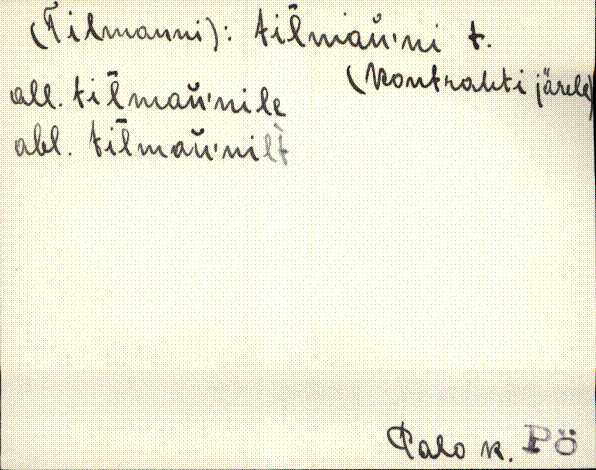 (Tilmanni): tilmaǹ'ni t.
(Kontrahti järele)
all. tilmaǹ'nile
abl. tilmaǹ'nilt
Palo k. PÖ